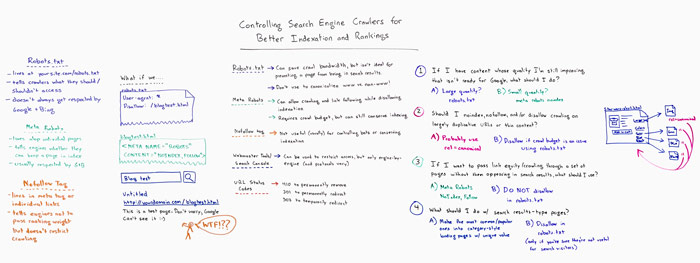 Controlling Search Engine Crawlers for
Better Indexation and Rankings
Robots.txt
- lives at yoursite.com/robots.txt
- tells crawlers what they should/
shouldn't access
- doesn't always get respected by
Google + Bing
Meta Robots
- lives atop individual pages
- tells engines whether they
can keep a page in index
- usually respected by SEs
Nofollow Tag
- lives in meta tag or
individual links
- tells engines not to
pass ranking weight
but doesn't restrict
crawling
What if we...
robots.txt
User-agent: *
Disallow: /blogtest.html
blogtest.html
<META NAME="ROBOTS"
CONTENT="NOINDEX, FOLLOW">
Blog test
Untitled
http://yourdomain.com/blogtest.html
This is a test page. Don't worry, Google
Can't see it :-)
WTF!??
Robots.txt
→ Can save crawl bandwidth, but isn't ideal for
preventing a page from being in search results
→ Don't use to canonicalize www vs non-www!
Meta Robots
→ Can allow crawling and link following while disallowing
indexation
→ Requires crawl budget, but can still conserve indexing
Nofollow tag
→ Not useful for controlling bots or conserving
indexation
Webmaster Tools/
Search Console
→ Can be used to restrict access, but only engine-by-
engine
URL Status
Codes
→ 410 to permanently remove
301 to permanently redirect
302 to temporarily redirect
1 If I have content whose quality I'm still improving
that isn't ready for Google, what should I do?
A) Large quantity?
robots.txt
B) Small quantity?
meta robots noindex
2 Should I noindex, nofollow, and/or disallow crawling on
largely duplicative URLs or thin content?
A) Probably use
rel=canonical
B) Disallow if crawl budget is an issue
using robots.txt
3 If I want to pass link equity (crawling) through a set of
pages without them appearing in search results, what should I use?
A) Meta Robots
NoIndex, Follow
B) DO NOT disallow
in robots.txt
4 What should I do w/ search results-type pages?
A) Make the most common/popular
ones into category-style
landing pages of unique value
B) Disallow in
robots.txt
(only if you're sure they're not useful
for search visitors)
rel=canonical